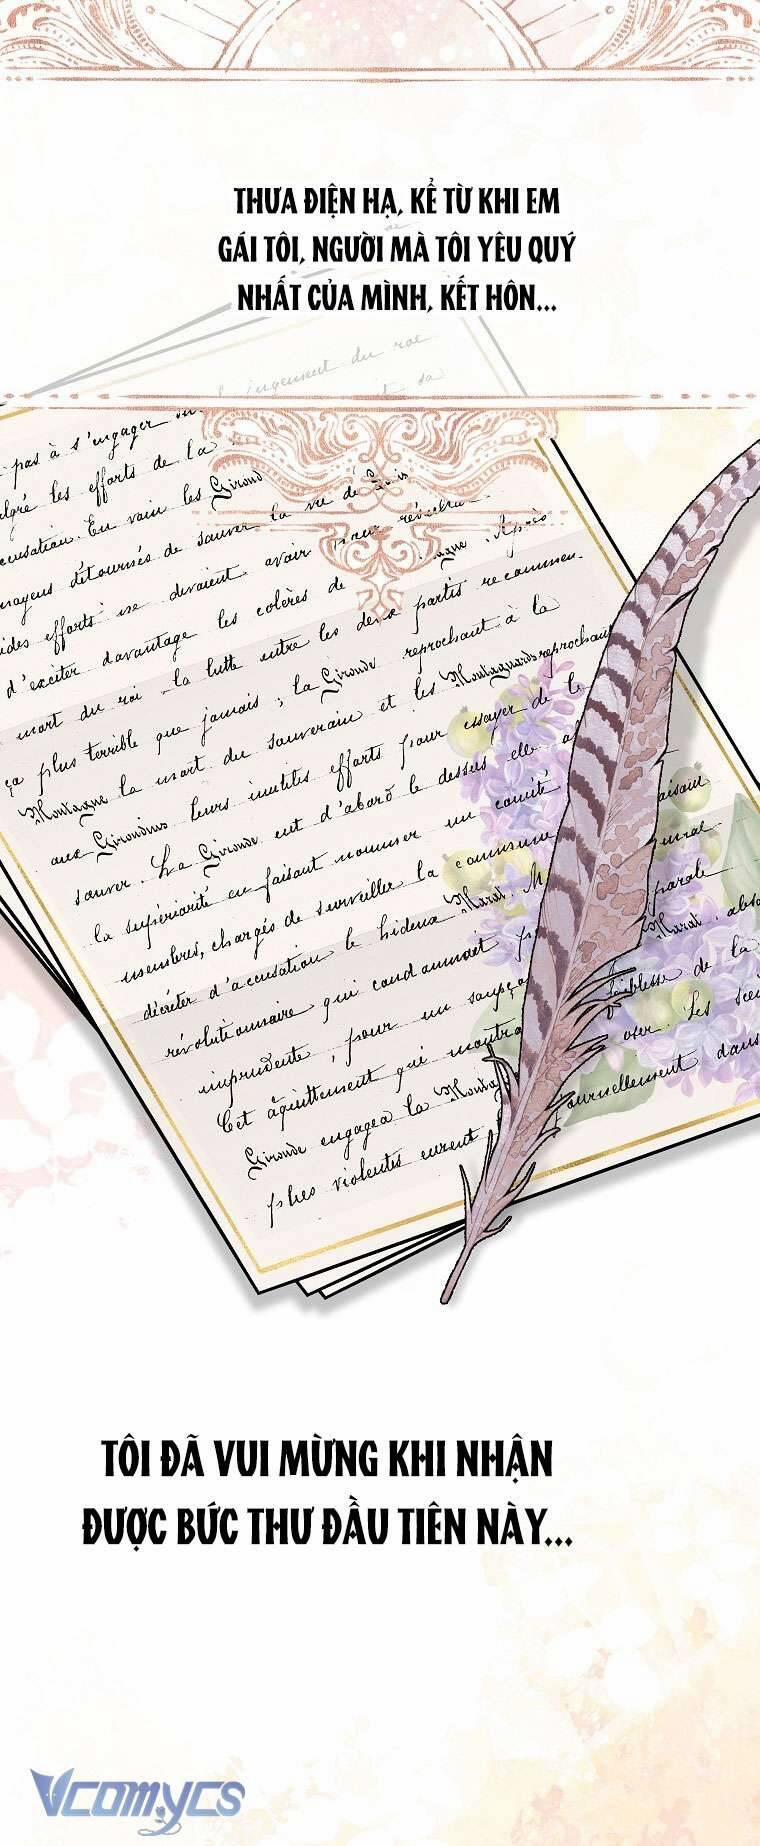 THƯA ĐIỆN HẠ, KỂ TỪ KHI EM
GÁI TÔI, NGƯỜI MÀ TÔI YÊU QUÝ
NHẤT CỦA MÌNH, KẾT HÔN...
jugement du roi
sa
pas à s'engager
malgré les efforts de la
accusation. En vain les Girond
moyens détournés de sauver la vie de Louis
efforts ne devaient avoir pour résulta
d'exciter davantage les colères de agne. Après
mort du roi la lutte entre les deux partis recommen-
ça plus terrible que jamais ; la Gironde reprochant à la
Montagne la mort du souverain et les Montagnards reprochant
aux Girondins leurs inutiles efforts pour essayer de le
sauver. La Gironde eut d'abord le dessus elle
la supériorité en faisant nommer un comité
membres, chargés de surveiller la commune
décréter d'accusation le hideux Marat. parole
révolutionnaire qui condamnait Marat, abso
imprudente, pour un soupço faiblesse de la
Cet acquittement qui montra oser. Les
Gironde engagea la Montag journellement dans
plus violentes eurent
TÔI ĐÃ VUI MỪNG KHI NHẬN
ĐƯỢC BỨC THƯ ĐẦU TIÊN NÀY...
Vcomycs